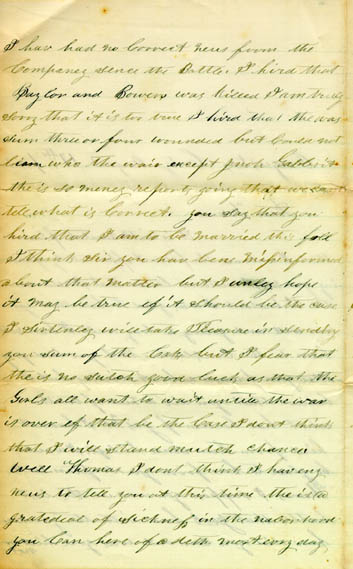 I hav had no Correct news from the
Company sence the Battle. I hird that
Taylor and Bowers was killed I am truly
Sorry that it is too true I hird that the was
sum three or four wounded but Could not
liarn who the wair except Jacob
the is so meney reports going that we cant
tell what is Correct. you say that you
hird that I am to be married this fall
I think Sir you have bene misinformed
about that Matter but I unley hope
it may be true if it Should be the case
I Sirtenley will take Pleasure in Sending
you Sum of the Cake but I fear that
the is no Sutch good luck as that, the
Girls all want to wait untill the war
is over if that be the Case I dont think
that I will Stand mutch Chance
Well Thomas I dont think I have eny
news to tell you at this time the is a
gratedeal of Sickness in the naborhood
you Can here of a deth most evry day